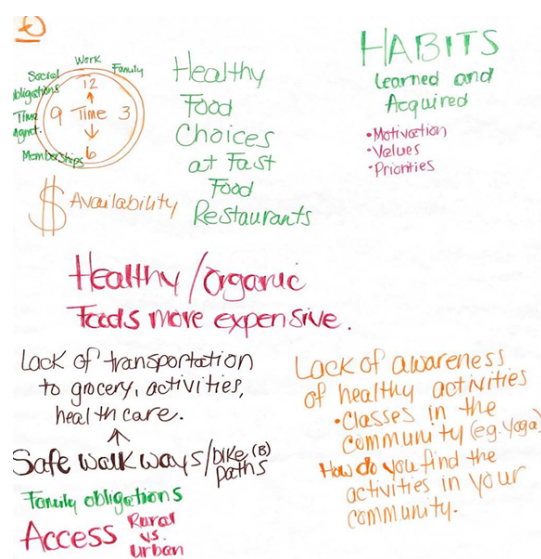 Work
Social
Family
obligations
12
Time
Mgmt.
9 Time 3
6
Memberships
$ Availability
Healthy
Food
Choices
at Fast
Food
Restaurants
HABITS
Learned and
Acquired
• Motivation
• Values
• Priorities
Healthy/organic
Foods more expensive.
Lack of transportation
to grocery, activities,
health care.
Safe walkways/bike (B)
paths
Family obligations
Access Rural
vs.
Urban
Lack of awareness
of healthy activities
• Classes in the
community (eg. Yoga)
How do you find the
activities in your
community.